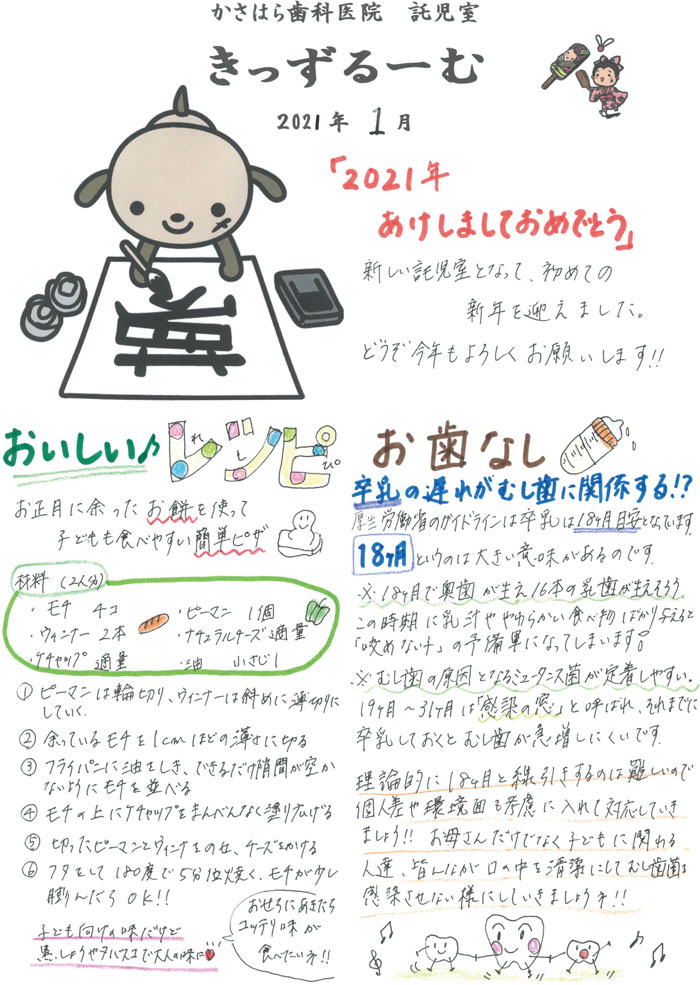 かさはら歯科医院 託児室
きっずるーむ
2021年 1月
「2021年
あけしましておめでとう」
新しい託児室となって、初めての
新年を迎えました。
どうぞ今年もよろしくお願いします!!
おいしい♪レシピ
れしぴ
お正月に余ったお餅を使って
子どもも食べやすい簡単ピザ
材料(2人分)
・モチ 4コ
・ウィンナー 2本
・ケチャップ 適量
・ピーマン 1個
・ナチュラルチーズ 適量
・油 小さじ1
① ピーマンは輪切り、ウィンナーは斜めに薄切りに
していく.
② 余っているモチを1cmほどの薄さに切る
③ フライパンに油をしき、できるだけ隙間が空か
ないようにモチを並べる
④ モチの上にケチャップをまんべんなく塗り広げる
⑤ 切ったピーマンとウィンナーをのせ、チーズをかける
⑥ フタをして180度で5分位焼く、モチが少し
膨んだらOK!!
子ども向けの味だけど
黒こしょうやタバスコで大人の味に
おせちにあきたら
コッテリ味が
食べたいネ!!
お歯なし
卒乳の遅れがむし歯に関係する!?
厚生労働省のガイドラインは卒乳は18ヶ月目安となっています
18ヶ月というのは大きい意味があるのです.
※18ヶ月で奥歯が生え16本の乳歯が生えそろう.
この時期に乳汁ややわらかい食べ物ばかり与えると
「咬めない子」の予備軍になってしまいます。
※むし歯の原因となるミュータンス菌が定着しやすい.
19ヶ月~31ヶ月は「感染の窓」と呼ばれ、それまでに
卒乳しておくとむし歯が急増しにくいです.
理論的に18ヶ月と線引きするのは難しいので
個人差や環境面も考慮に入れて対応していき
ましょう!! お母さんだけでなく子どもに関わる
人達、皆んなが口の中を清潔にしてむし歯菌を
感染させない様にしていきましょうネ!!